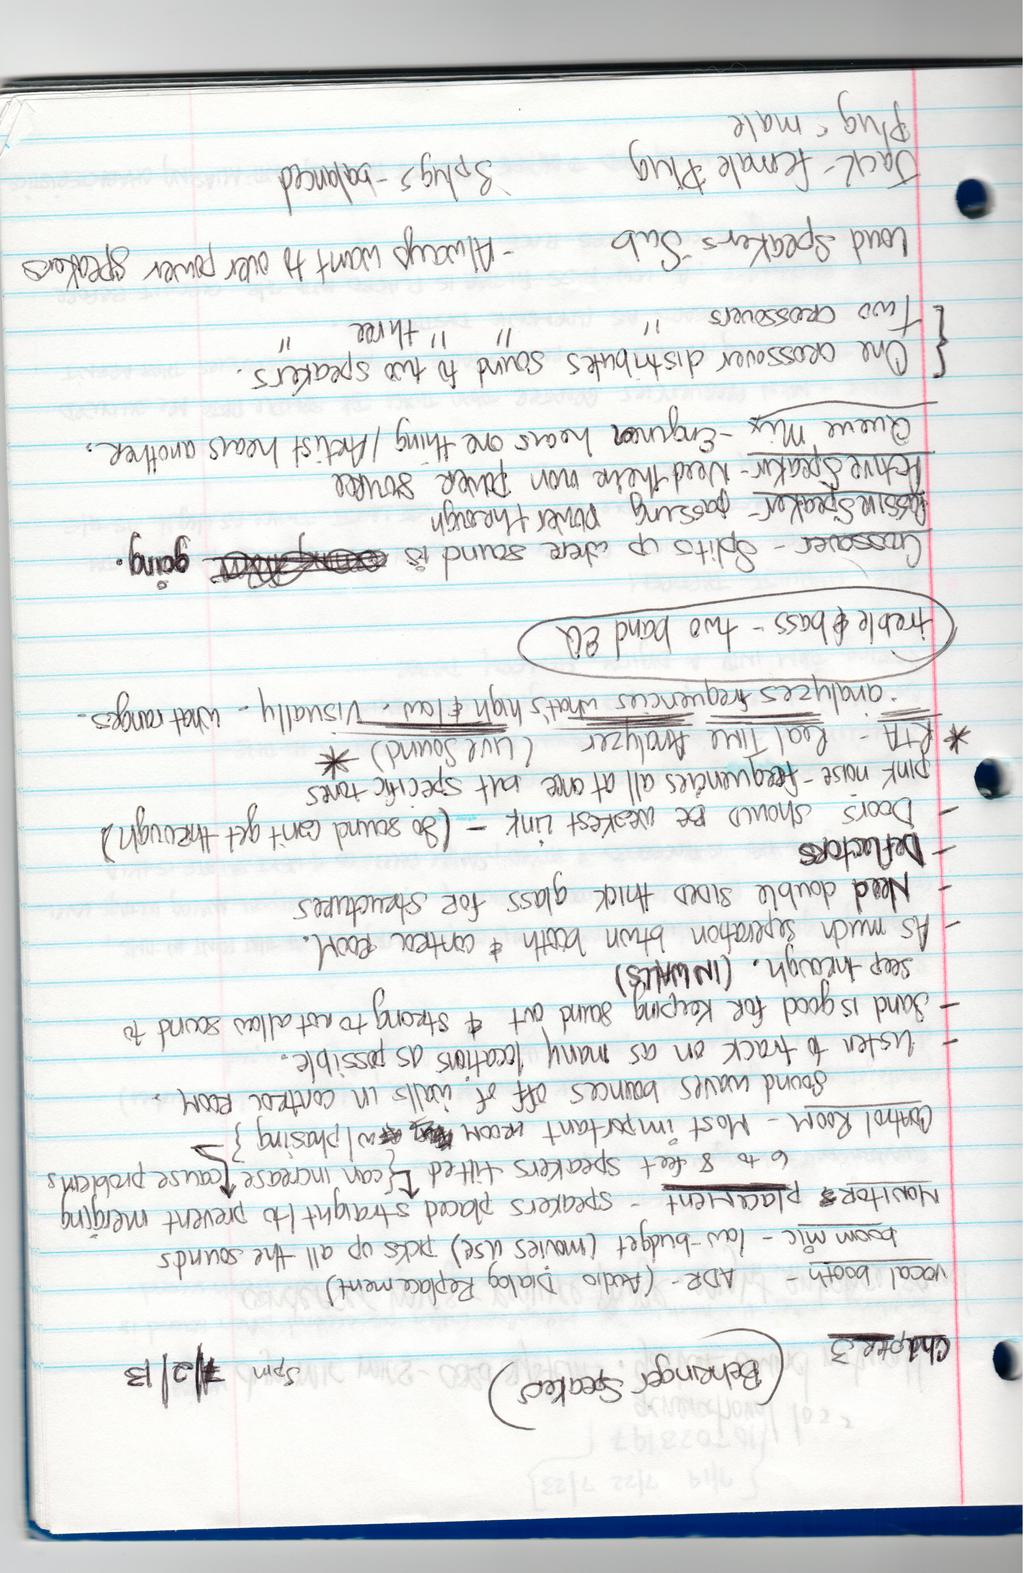 Chapter 3 (Behringer Speakers) 5pm 7/2/13
vocal booth - ADR - (Audio Dialog Replacement)
boom mic - low-budget (movies use) picks up all the sounds
Monitors placement - speakers placed straight (to prevent merging
6 to 8 feet speakers tilted {can increase cause problems
Control Room - Most important room w/phasing}
Sound waves bounces off of walls in control room.
- Listen to track on as many locations as possible.
- Sand is good for keeping sound out & strong to not allow sound to
seep through. (IN WALLS)
- As much seperation btwn booth & control room.
- Need double sided thick glass for structures
- Deflectors
- Doors should be weakest link - (So sound can't get through)
pink noise - frequencies all at once but specific tones
* RTA - Real Time Analyzer (Live Sound) *
- analyzes frequencies what's high & low. Visually. What ranges.
treble & bass - two band EQ
Crossover - Splits up where sound is going.
Passive Speaker - passing power through
Active Speaker - Need their own power source
Queue Mix - Engineer hears one thing / Artist hears another.
{ One crossover distributes sound to two speakers.
Two crossovers " " " three "
Loud Speakers - Sub - Always want to over power speakers
Jack - female Plug 3 plugs - balanced
Plug - male